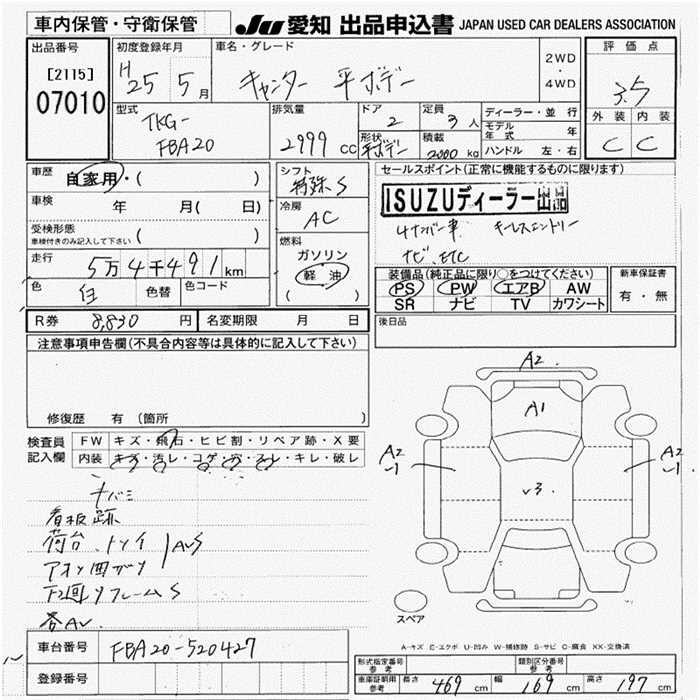 車内保管・守衛保管
JU 愛知 出品申込書 JAPAN USED CAR DEALERS ASSOCIATION
出品番号
[2115]
07010
初度登録年月
H25 5月
車名・グレード
キャンター 平ボデー
2WD
・
4WD
評価点
3.5
外装 内装
C C
型式
TKG-
FBA20
排気量
2999 cc
ドア
2
定員
3人
形状
平ボデー
積載
2000 kg
ディーラー・並行
モデル年式 年
ハンドル 左・右
車歴
自家用・( )
車検 年 月(日)
受検形態
車検付きのみ記入して下さい ( )
走行
5万4千491km
色
白
色替
色コード
シフト
特殊 5
冷房
AC
燃料
ガソリン
軽油
( )
セールスポイント(正常に機能するものに限ります)
ISUZUディーラー出品
4ナンバー車 キーレスエントリー
ナビ、ETC
装備品(純正品に限り○をつけてください)
PS PW エアB AW
SR ナビ TV カワシート
新車保証書
有・無
R券 8,830 円
名変期限 月 日
後日品
注意事項申告欄(不具合内容等は具体的に記入して下さい)
修復歴 有(箇所 )
検査員
記入欄
FW キズ・飛石・ヒビ割・リペア跡・X要
内装 キズ・汚レ・コゲ・穴・スレ・キレ・破レ
看板跡
荷台
下廻り フレーム S
各AU
A2
A1
A2
-1
√3
A2
-1
スペア
A-キズ E-エクボ U-凹み W-補修跡 S-サビ C-腐食 XX-交換済
車台番号 FBA20-520427
登録番号
形式指定番号
参考
類別区分番号
参考
車庫証明用
参考
長さ 469 cm 幅 169 cm 高さ 197 cm